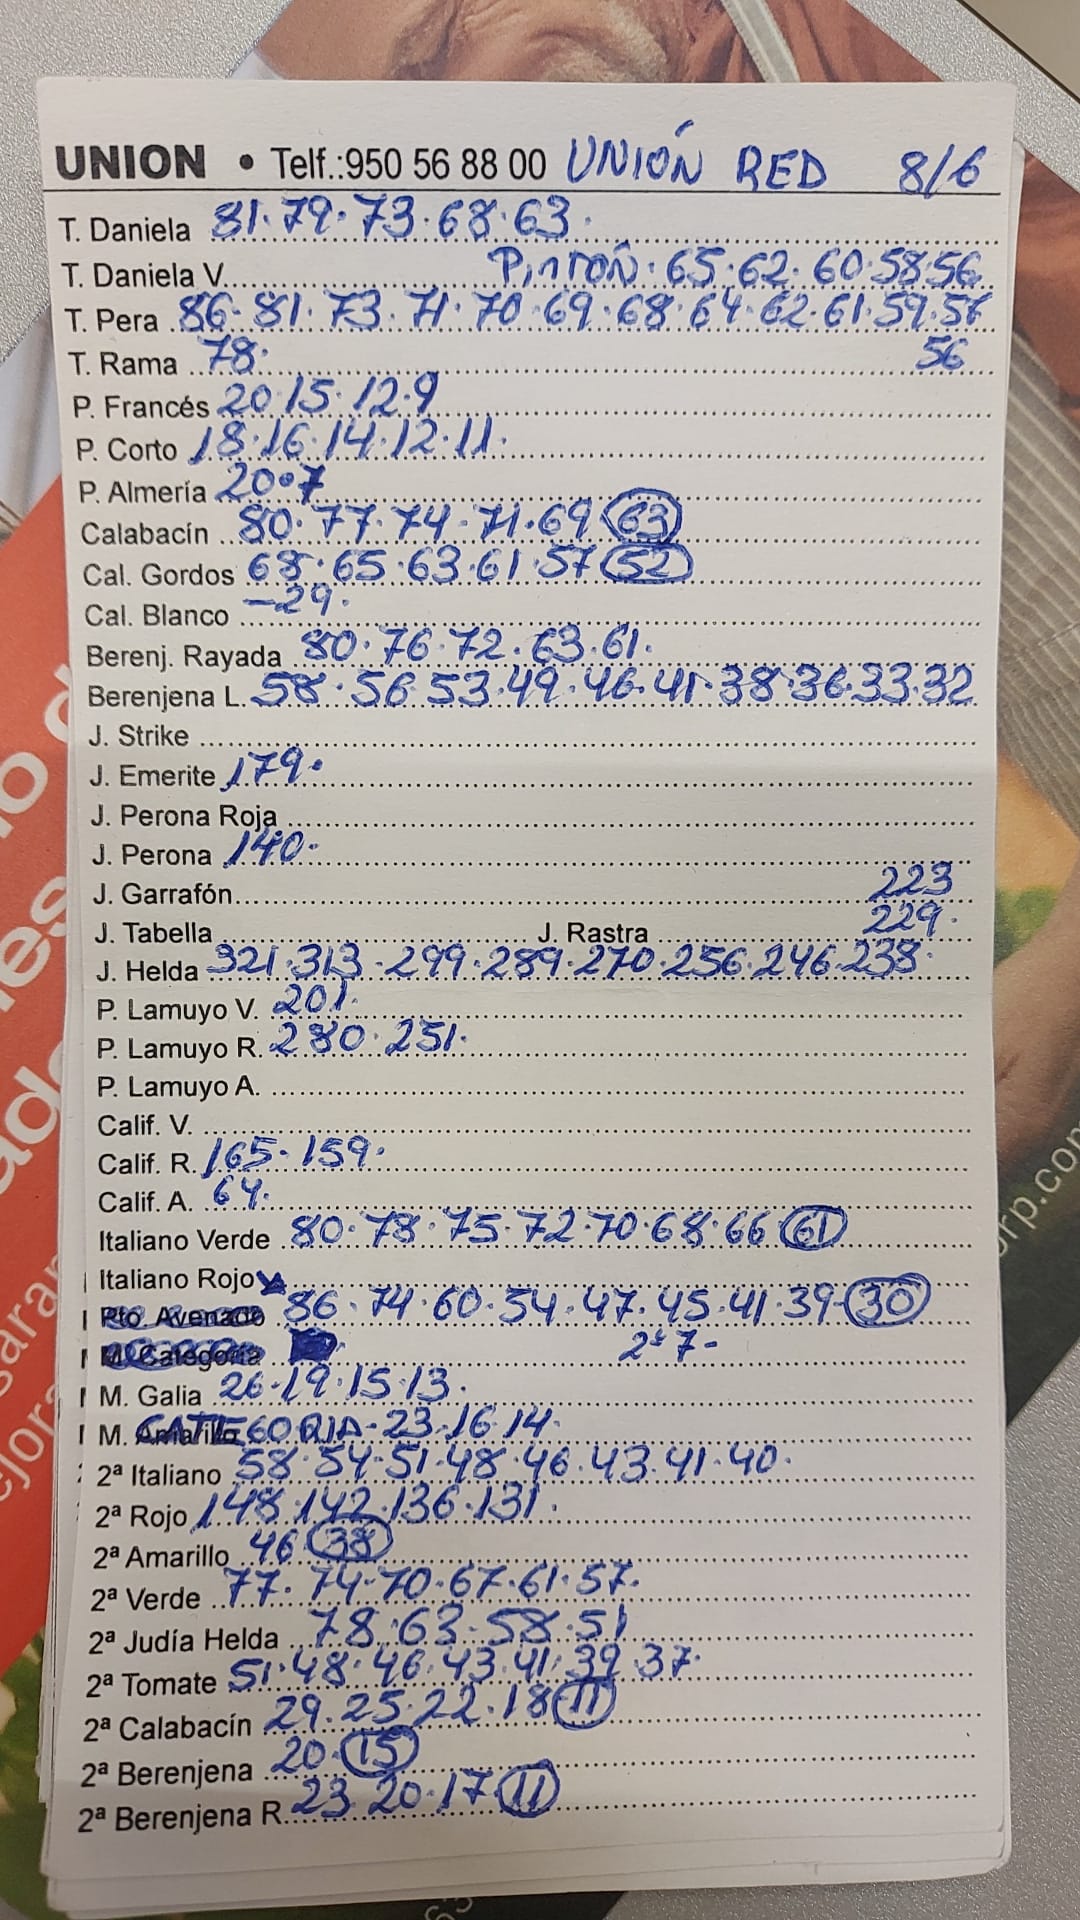 UNION • Telf.:950 56 88 00 UNIÓN RED 8/6
T. Daniela 81·79·73·68·63·
T. Daniela V. PINTÓN·65·62·60·58·56
T. Pera 86·81·73·71·70·69·68·64·62·61·59·56
T. Rama 78· 56
P. Francés 20·15·12·9
P. Corto 18·16·14·12·11·
P. Almería 20·7
Calabacín 80·77·74·71·69 63
Cal. Gordos 68·65·63·61·57 52
Cal. Blanco –29·
Berenj. Rayada 80·76·72·63·61·
Berenjena L. 58·56·53·49·46·41·38·36·33·32
J. Strike
J. Emerite 179·
J. Perona Roja
J. Perona 140·
J. Garrafón 223
J. Tabella J. Rastra 229·
J. Helda 321·313·299·289·270·256·246·238·
P. Lamuyo V. 201·
P. Lamuyo R. 280·251·
P. Lamuyo A.
Calif. V.
Calif. R. 165·159·
Calif. A. 64·
Italiano Verde 80·78·75·72·70·68·66 61
Italiano Rojo
Pto. Avenado 86·74·60·54·47·45·41·39 30
M. Categoria 2ª 7-
M. Galia 26·19·15·13·
M. Amarillo CATEGORIA-23·16·14·
2ª Italiano 58·54·51·48·46·43·41·40·
2ª Rojo 148·142·136·131·
2ª Amarillo 46 38
2ª Verde 77·74·70·67·61·57·
2ª Judía Helda 78·63·58·51
2ª Tomate 51·48·46·43·41·39·37·
2ª Calabacín 29·25·22·18 11
2ª Berenjena 20· 15
2ª Berenjena R. 23·20·17 11